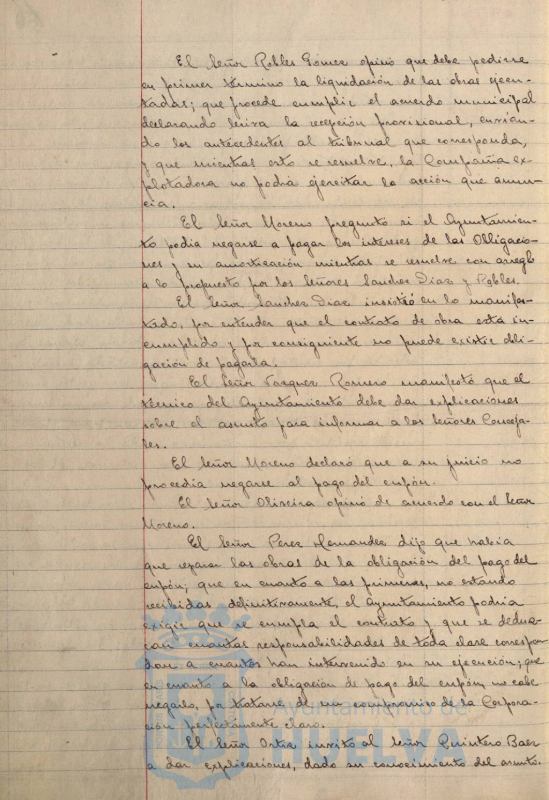 El Señor Robles Gómez opinó que debe pedirse
en primer término la liquidación de las obras ejecu-
tadas; que procede cumplir el acuerdo municipal
declarando lesiva la recepción provisional, envian-
do los antecedentes al tribunal que corresponda,
y que mientras esto se resuelve, la Compañía ex-
plotadora no podrá ejercitar la acción que anun-
cia.
El Señor Moreno preguntó si el Ayuntamien-
to podia negarse a pagar los intereses de las Obligacio-
nes y su amortización mientras se resuelve con arreglo
a lo propuesto por los Señores Sanchez Diaz y Robles.
El Señor Sanchez Diaz insistió en lo manifes-
tado, por entender que el contrato de obra está in-
cumplido y por consiguiente no puede existir obli-
gación de pagarla.
El Señor Vazquez Romero manifestó que el
técnico del Ayuntamiento debe dar explicaciones
sobre el asunto para informar a los Señores Conceja-
les.
El Señor Moreno declaró que a su juicio no
procedia negarse al pago del cupón.
El Señor Oliveira opinó de acuerdo con el Señor
Moreno.
El Señor Perez Hernandez dijo que habia
que separar las obras de la obligación del pago del
cupón; que en cuanto a las primeras, no estando
recibidas definitivamente, el Ayuntamiento podria
exigir que se cumpla el contrato y que se deduz-
can cuantas responsabilidades de toda clase correspon-
dan a cuantos han intervenido en su ejecución; que
en cuanto a la obligación de pago del cupón, no cabe
negarlo, por tratarse de un compromiso de la Corpora-
ción perfectamente claro.
El Señor Ortiz invitó al Señor Quintero Baez
a dar explicaciones, dado su conocimiento del asunto.
Ayuntamiento de
HUELVA